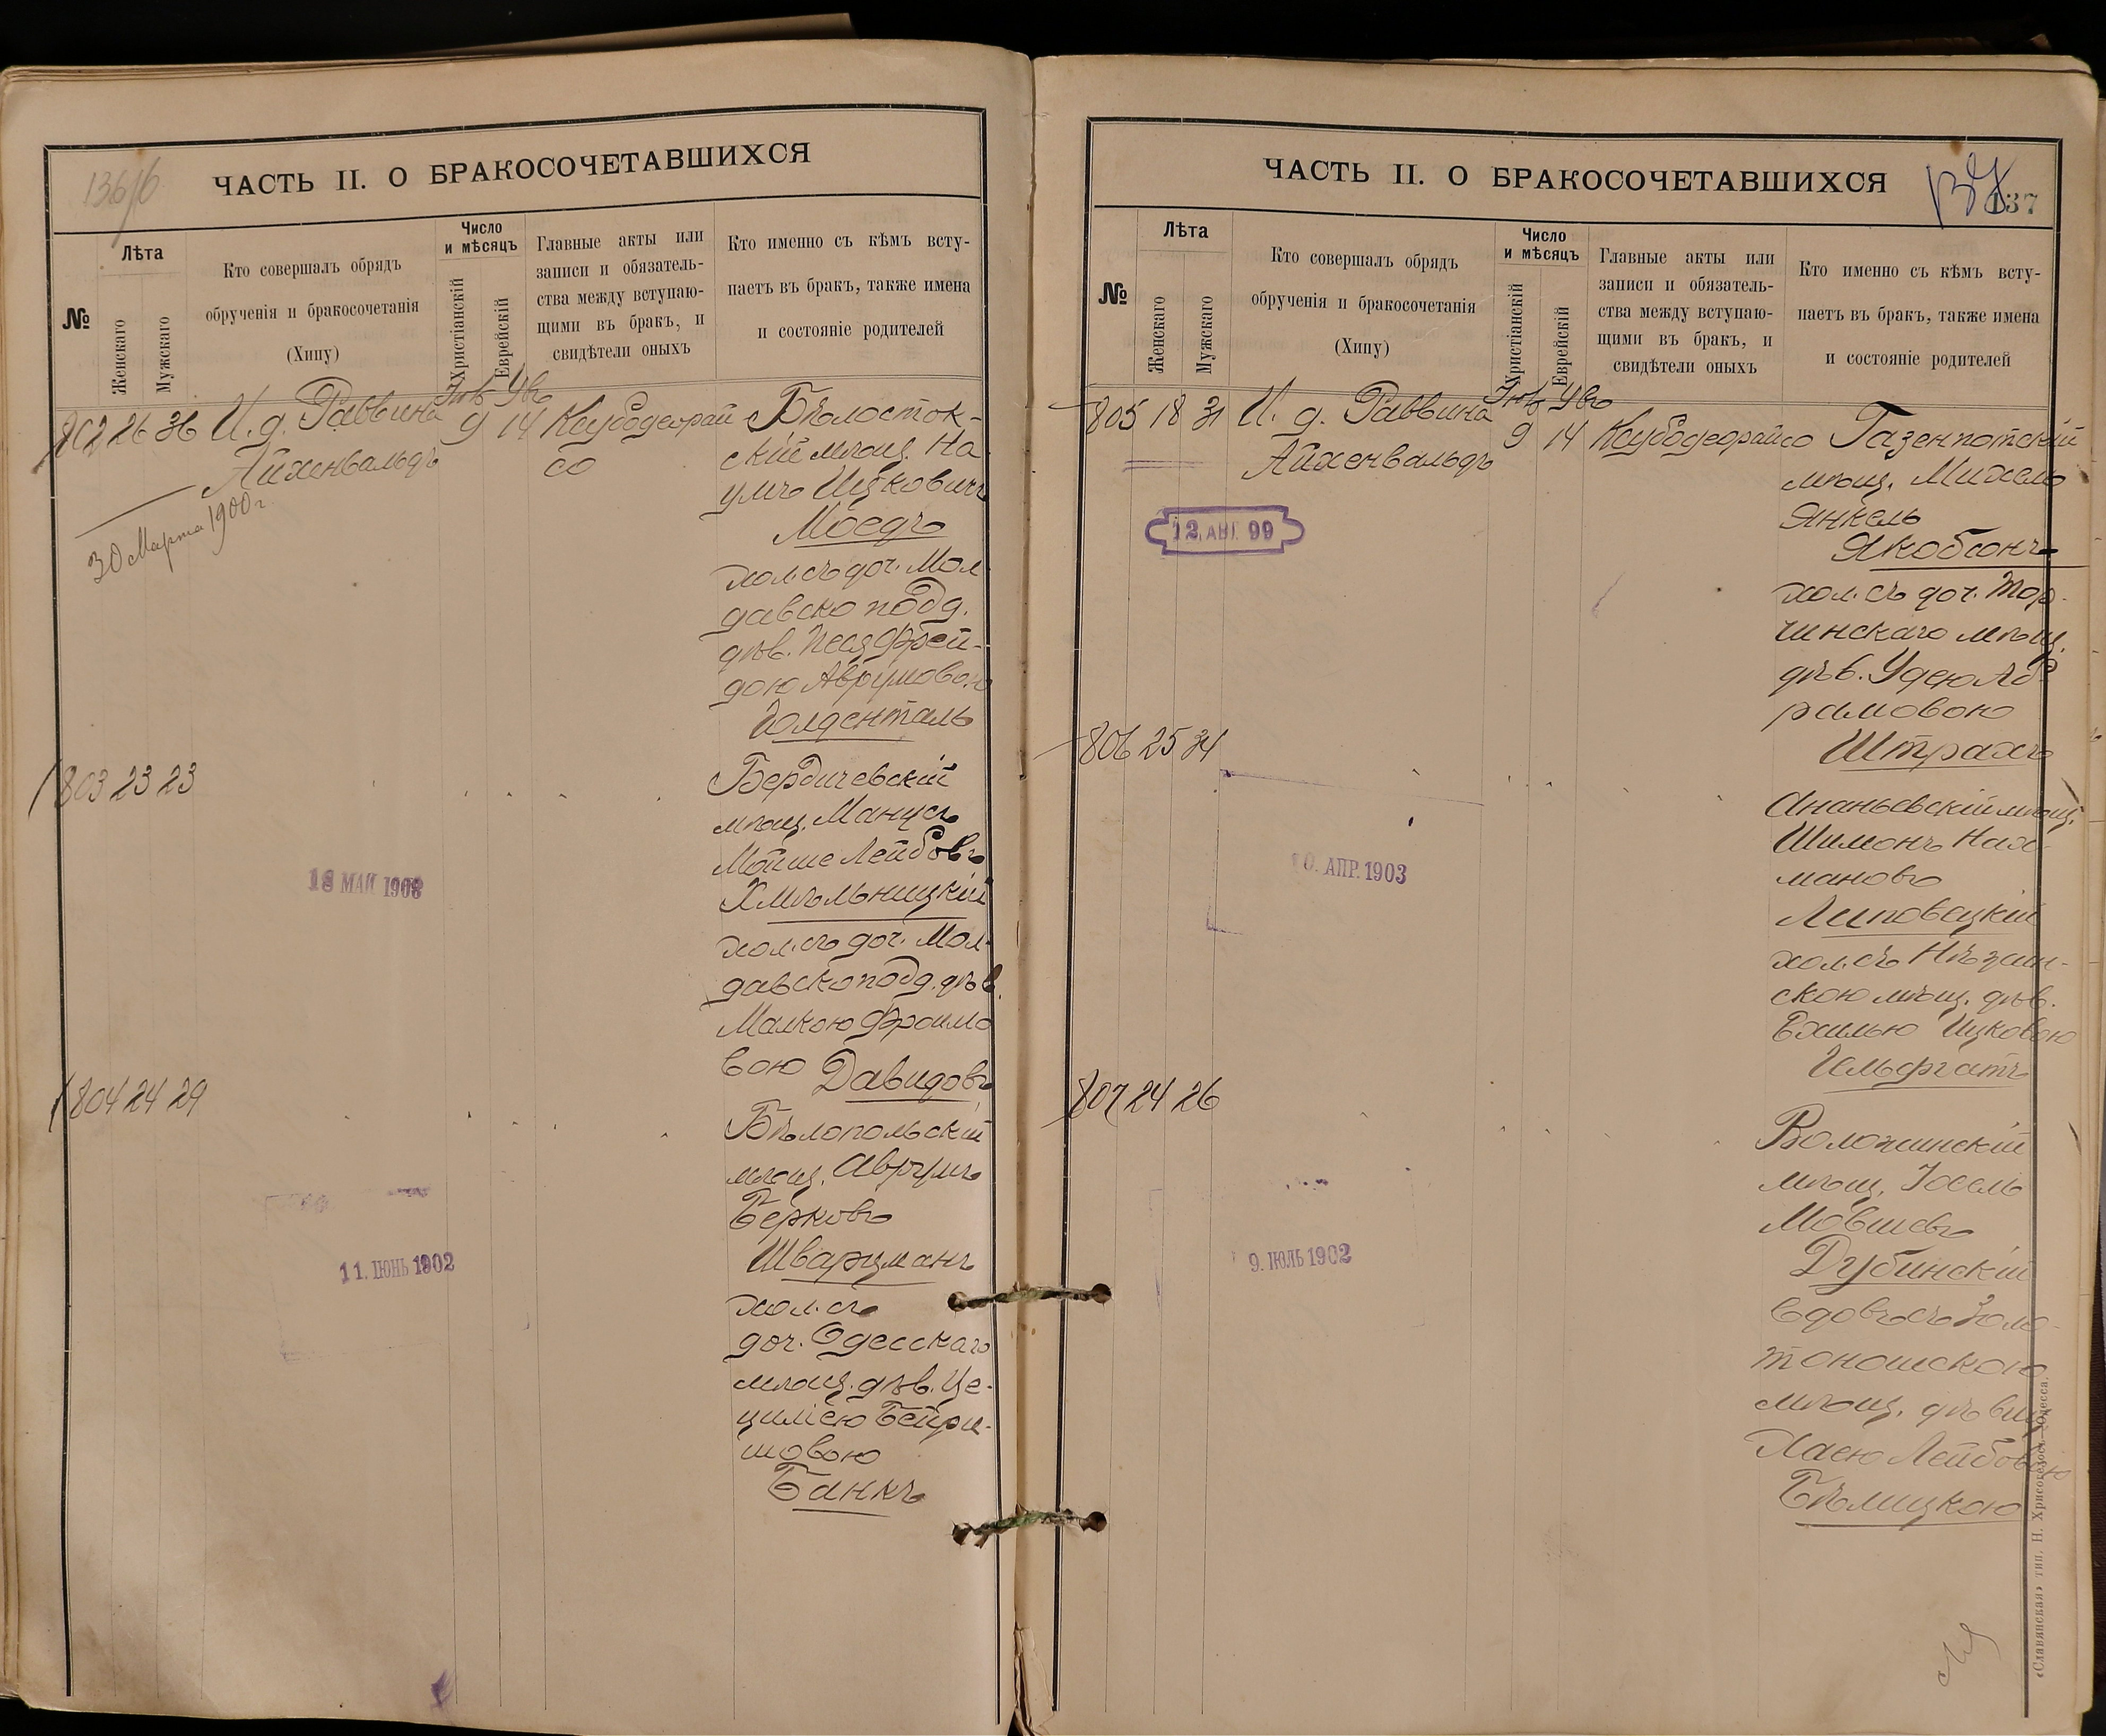 136/б
ЧАСТЬ II. О БРАКОСОЧЕТАВШИХСЯ
№
Лѣта
Женскаго
Мужскаго
Кто совершалъ обрядъ
обрученія и бракосочетанія
(Хипу)
Число
и мѣсяцъ
Христіанскій
Еврейскій
Главные акты или
записи и обязатель-
ства между вступаю-
щими въ бракъ, и
свидѣтели оныхъ
Кто именно съ кѣмъ всту-
паетъ въ бракъ, также имена
и состояніе родителей
802 26 36 И. д. Раввина 9 14 Ксубодеорай
Айхенвальдъ
со
30 Марта 1900 г.
Бѣлосток-
скій мѣщ. На-
умъ Ицковичъ
Моедъ
хол. съ доч. Мол-
давско подд.
дѣв. Песя Фрей-
дою Аврумовою
Голденталь
803 23 23
Бердичевскій
мѣщ. Манусъ
Мойше Лейбовъ
Хмѣльницкій
хол. съ доч. Мол-
давско подд. дѣв.
Малкою Фроимо
вою Давидовъ
18 МАЙ 1908
804 24 29
Бѣлопольскій
мѣщ. Аврумъ
Берковъ
Шварцманъ
хол. съ
доч. Одесскаго
мѣщ. дѣв. Це-
циліею Бейри-
шовою
Банкъ
11. ІЮНЬ 1902
ЧАСТЬ II. О БРАКОСОЧЕТАВШИХСЯ
137
№
Лѣта
Женскаго
Мужскаго
Кто совершалъ обрядъ
обрученія и бракосочетанія
(Хипу)
Число
и мѣсяцъ
Христіанскій
Еврейскій
Главные акты или
записи и обязатель-
ства между вступаю-
щими въ бракъ, и
свидѣтели оныхъ
Кто именно съ кѣмъ всту-
паетъ въ бракъ, также имена
и состояніе родителей
805 18 31 И. д. Раввина 9 14 Ксубодеорайсо
Айхенвальдъ
12. АВГ. 99
Газенпотскій
мѣщ. Михель
Янкель
Якобсонъ
хол. съ доч. Тор-
чинскаго мѣщ.
дѣв. Удею Аб-
рамовою
Штрахъ
806 25 34
Ананьевскій мѣщ.
Шимонъ Нах-
мановъ
Липовецкій
хол. съ Нѣжин-
скою мѣщ. дѣв.
Ехилью Ицковою
Гельфгатъ
10. АПР. 1903
807 24 26
Воложинскій
мѣщ. Іосель
Мовшевъ
Дубинскій
вдовъ съ Золо-
тоношскою
мѣщ. дѣвиц.
Хаею Лейбовою
Бѣлицкою
9. ІЮЛЬ 1902
«Славянская» тип. Н. Хрисогелосъ, Одесса.